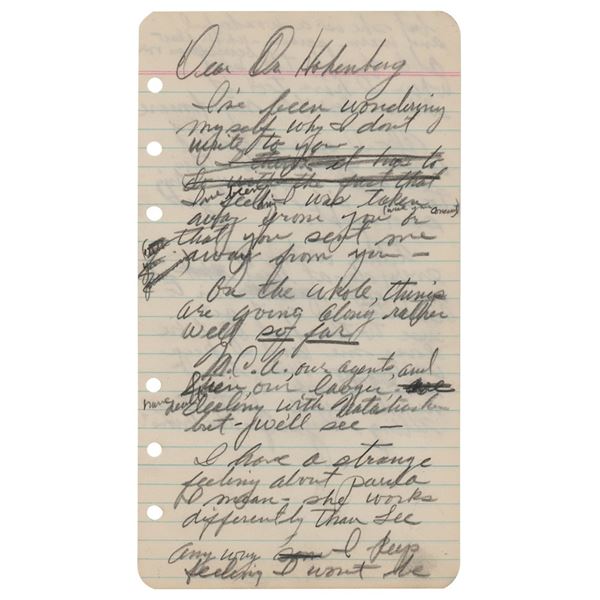 Dear Dr. Hohenberg
I've been wondering
myself why I don't
write to you
I think it has to
do with the fact that
I've been feeling I was taken
away from you (with your consent) or
that you sent me
away from you —
On the whole, things
are going along rather
well so far
M.C.A. our agents, and
Stein, our lawyer, are
have been dealing with Natasha
but - we'll see —
I have a strange
feeling about paula
I mean - she works
differently than Lee
any way I keep
feeling I won't be